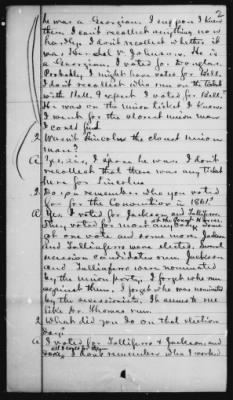 2
he was a Georgian. I reckon I knew
them I don't recollect anything now
hardly. I don't recollect whether it
was Her. sel V. Johnson. He is
a Georgian. I voted for Douglas.
Probably I might have voted for Bell.
I don't recollect who run on the ticket
with Bell. I expect I voted for Bell.
He was on the Union ticket I know.
I went for the closest union man
I could find
Q Wasn't Lincoln the closest union
man?
A Yes, sir, I spose he was. I don't
recollect that there was any ticket
here for Lincoln
Q Do you remember who you voted
for for the Convention in 1861?
A Yes. I voted for Jackson and Talliferro
at the Court House
They voted for most any body
at one vote and some more. Jackson
and Talliaferro were elected. Several
secession candidates run Jackson
and Talliaferro was nominated
by the union party. I forget who run
against them. I forget who was nominated
by the secessionists. It seems to me
like Dr. Thomas run.
Q What did you do on that election
day?
A I voted for Talliferro & Jackson and
I don't remember who I worked